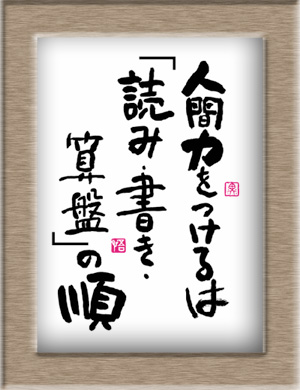 人間力をつけるは
「読み・書き・
算盤」の順